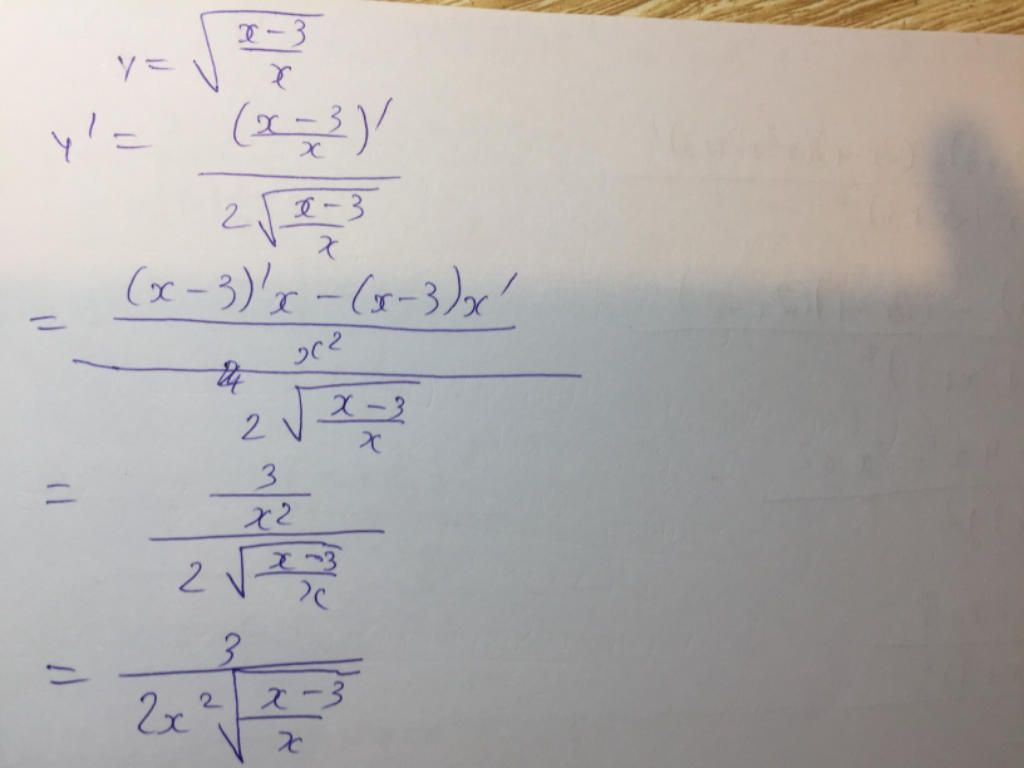 y = √((x-3)/x)
y' = ((x-3)/x)' / (2√((x-3)/x))
= (((x-3)'x - (x-3)x')/x²) / (2√((x-3)/x))
= (3/x²) / (2√((x-3)/x))
= 3 / (2x²√((x-3)/x))